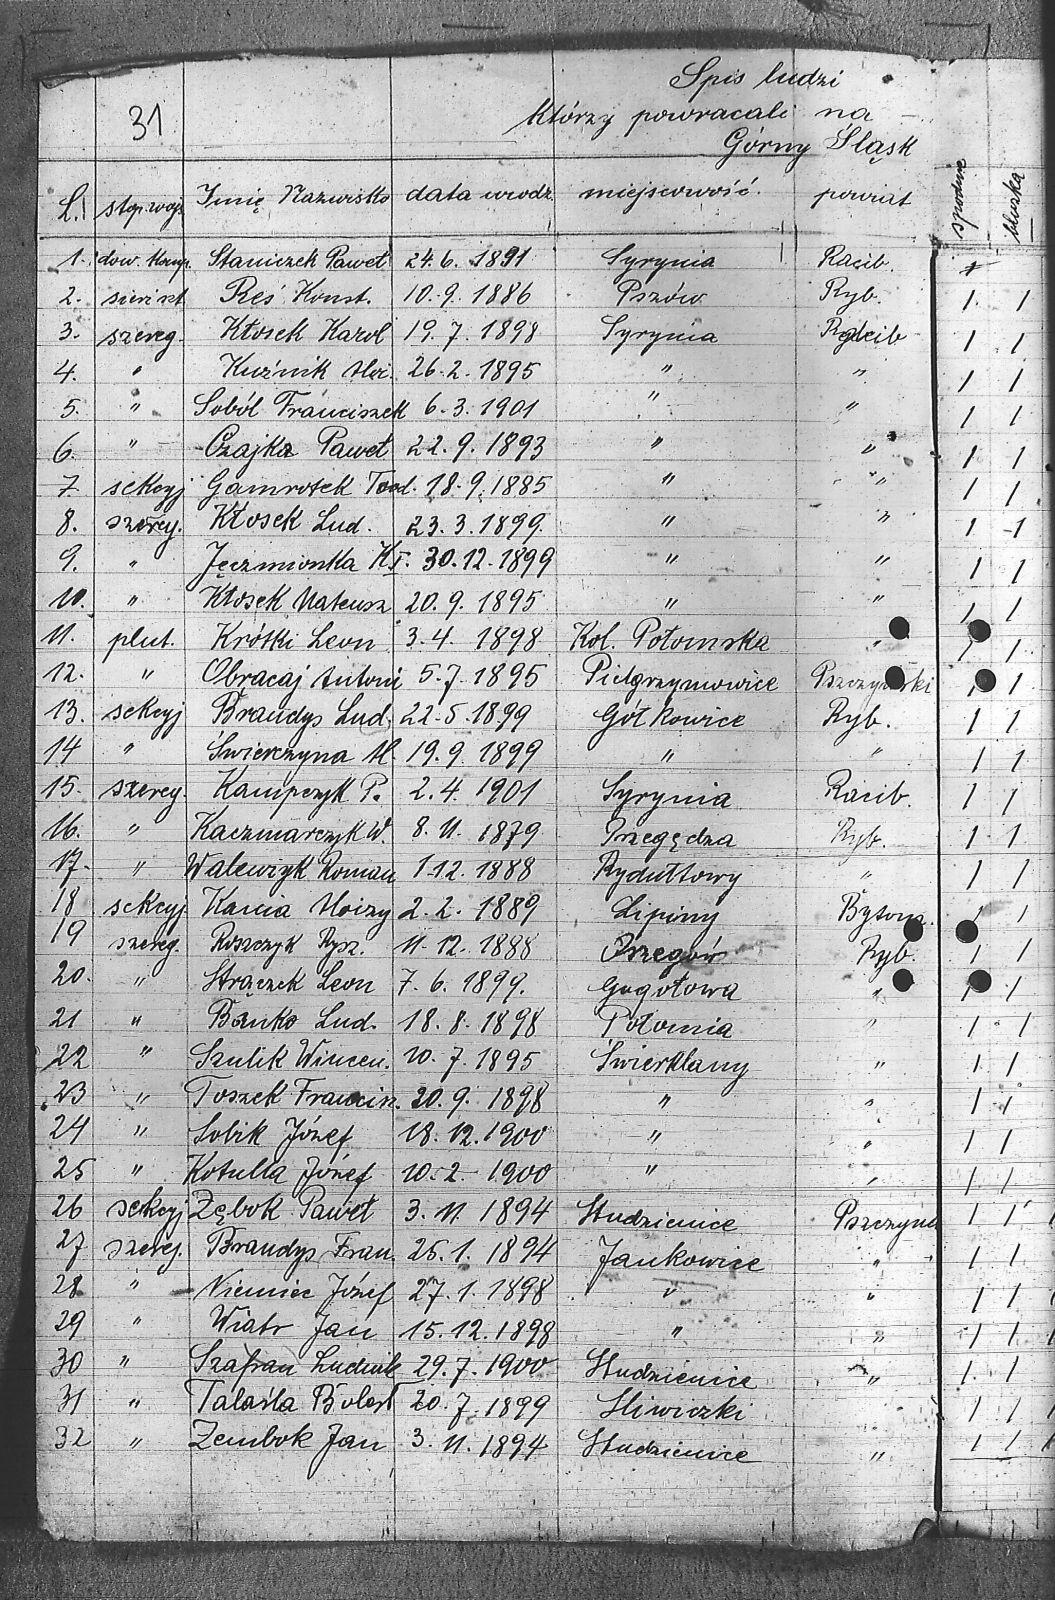 Spis ludzi
31
którzy powracali na
Górny Śląsk
L. stop. woj. Imię Nazwisko data urodz. miejscowość. powiat spodnie bluzka
1. dow. komp. Staniczek Paweł 24.6. 1891 Syrynia Racib. 1
2. sierżt. Reś Konst. 10.9. 1886 Pszów Ryb. 1 1
3. szereg. Kłosek Karol 19.7. 1898 Syrynia Racib 1 1
4. " Kuźnik Aloi. 26.2. 1895 " " 1 1
5. " Soból Franciszek 6.3. 1901 " " 1 1
6. " Czajka Paweł 22.9. 1893 " " 1 1
7 sekcyj Gamrotek Teod. 18.9. 1885 " " 1 1
8. szereg. Kłosek Lud. 23.3. 1899. " " 1 1
9. " Jęczmionka K I. 30.12. 1899 " " 1 1
10. " Kłosek Mateusz 20.9. 1895 " " 1 1
11. plut. Krótki Leon 3.4. 1898 Kol. Połomska " 1 1
12. " Obracaj Antoni 5.7. 1895 Pielgrzymowice Pszczyński 1 1
13. sekcyj Brandys Lud. 22.5. 1899 Gółkowice Ryb. 1 1
14 " Świerczyna Al. 19.9. 1899 " " 1 1
15. szereg. Kampczyk P. 2.4. 1901 Syrynia Racib. 1 1
16. " Kaczmarczyk W. 8.11. 1879 Przegędza Ryb. 1 1
17. " Walewzyk Roman 1.12. 1888 Rydułtowy " 1 1
18 sekcyj Kania Aloizy 2.2. 1889 Lipiny Bytom. 1 1
19 szereg. Roszczyk Rysz. 11.12. 1888 Orzegów Ryb. 1 1
20. " Strączek Leon 7.6. 1899. Gogołowa " 1 1
21 " Banko Lud. 18.8. 1898 Połomia " 1 1
22 " Szulik Wincen. 10.7. 1895 Świerklany " 1 1
23 " Toszek Francisz. 20.9. 1898 " " 1 1
24 " Sobik Józef 18.12. 1900 " " 1 1
25 " Kotulla Józef 10.2. 1900 " " 1 1
26 sekcyj Zębok Paweł 3.11. 1894 Studzienice Pszczyna 1 1
27 szereg. Brandys Fran. 25.1. 1894 Jankowice " 1 1
28 " Niemiec Józef 27.1. 1898 " " 1 1
29 " Wiatr Jan 15.12. 1898 " " 1 1
30 " Szafran Ludwik 29.7. 1900 Studzienice " 1 1
31 " Talaśka 20.7. 1899 " 1 1
32 " Zembok Jan 3.11. 1894 Studzienice " 1 1